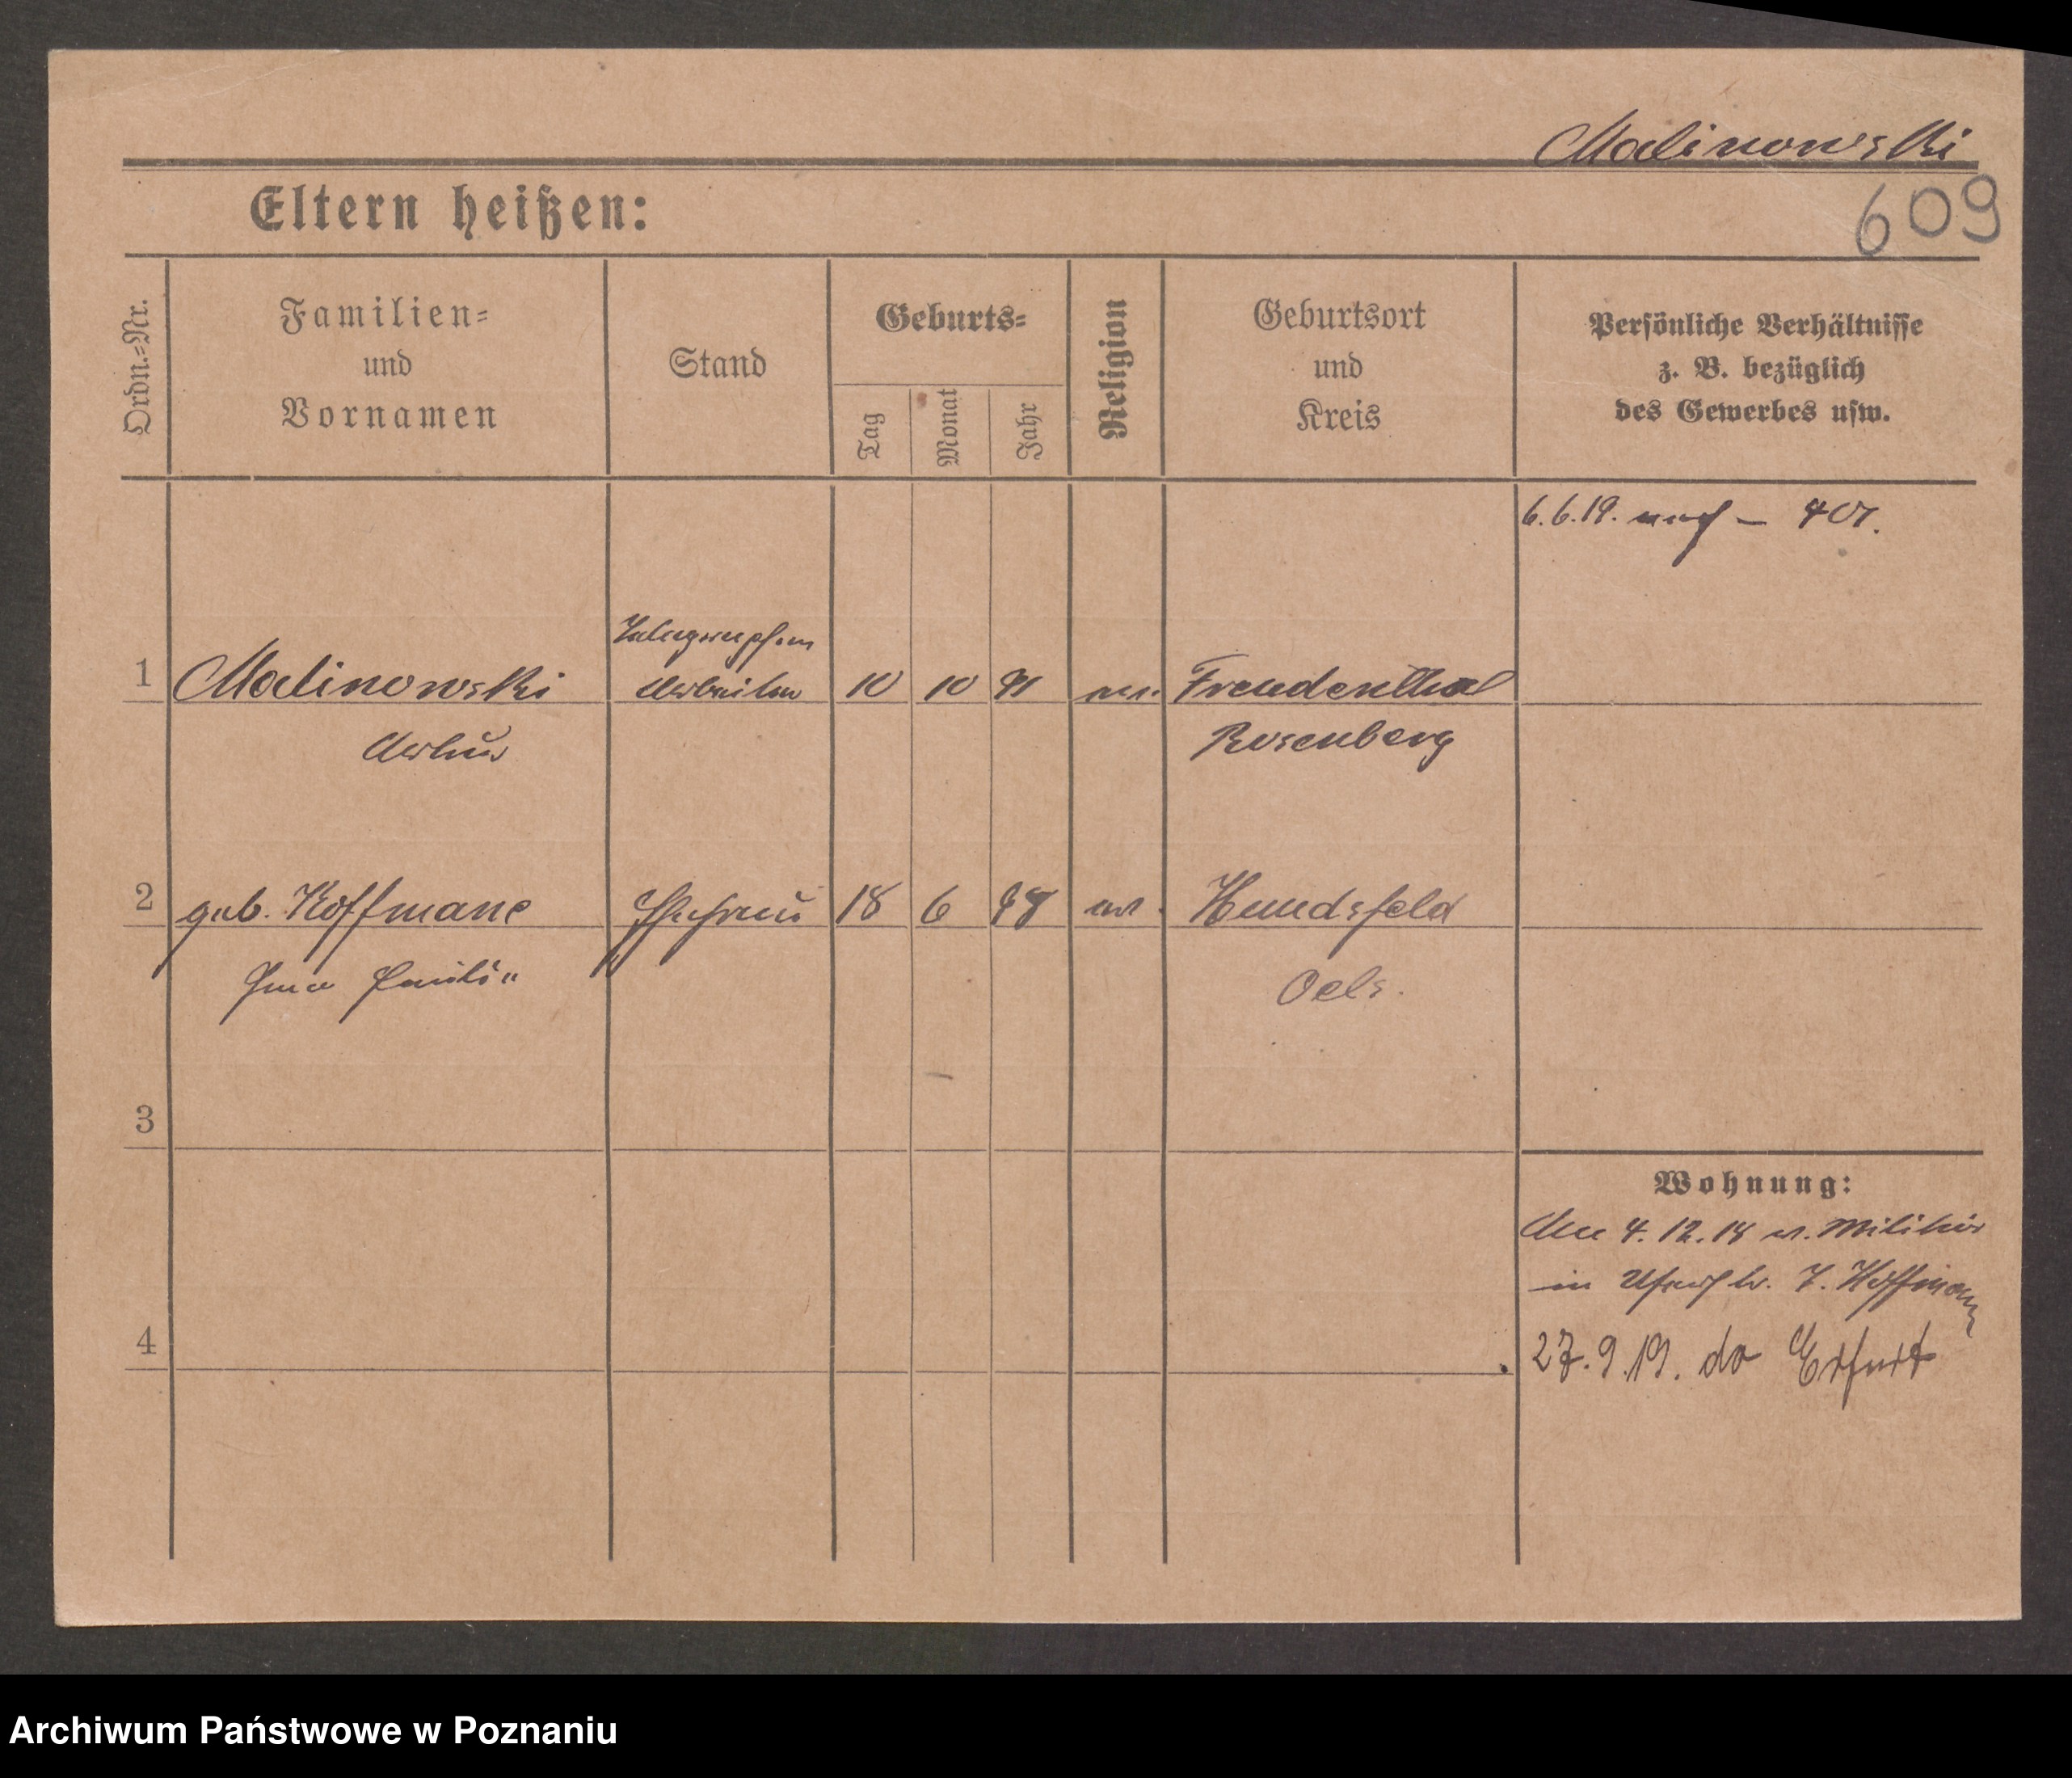 Malinowski
609
Eltern heißen:
Ordn.=Nr.
Familien=
und
Vornamen
Stand
Geburts=
Tag
Monat
Jahr
Religion
Geburtsort
und
Kreis
Persönliche Verhältnisse
z. B. bezüglich
des Gewerbes usw.
6.6.19. nach –
1 Malinowski
Telegraphen
Arbeiter
10 10 91
Freudenthal
Artur
Rosenberg
2 geb. Hoffmann Ehefrau 18 6 ev. Hundsfeld
Oels.
3
Wohnung:
4.12.18 v. Militär
in Hoffmann
4
27.9.19. do Erfurt
Archiwum Państwowe w Poznaniu